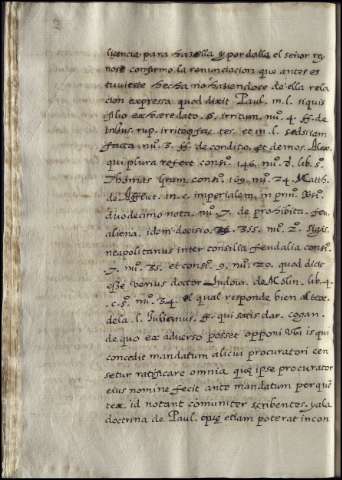 2
licencia para hazella y por dalla el señor rey
no se confirmo la renunciacion que antes es
tuviesse hecha no haviendose de ella rela
cion expressa quod dixit Paul. in l. si quis
filio exheredato. §. irritum. nu.º 4. ff. de
iniusto rup. irritoq; fac. tes. et in l. sed si iam
facta nu.º 3. ff. de conditio. et demos. Alex.
qui plura refert consi.º 146. nu.º 8. lib. 5.º
Thomas Gram. consi.º 169. nu.º 24. Matth.
de Afflict. in c. imperialem. in prin.
duodecimo nota. nu.º 7. de prohibita. feu.
aliena. idem decisio. 35. nu.º 2. sigis.
neapolitanus inter consilia feudalia consi.º
7. nu.º 35. et consi.º 9. nu.º 20. quod dicit
esse verius doctor Ludovi. de Molin. lib. 4.
c. 3. nu.º 34. el qual responde bien al tex.
de la. l. Julianus. ff. qui satis dar. cogan.
de quo ex adverso posset opponi ubi is qui
concedit mandatum alicui procuratori cen
setur ratificare omnia quę ipse procurator
eius nomine fecit ante mandatum porque
tex. id notant comuniter scribentes. y a la
doctrina de Paul. quę etiam poterat incon